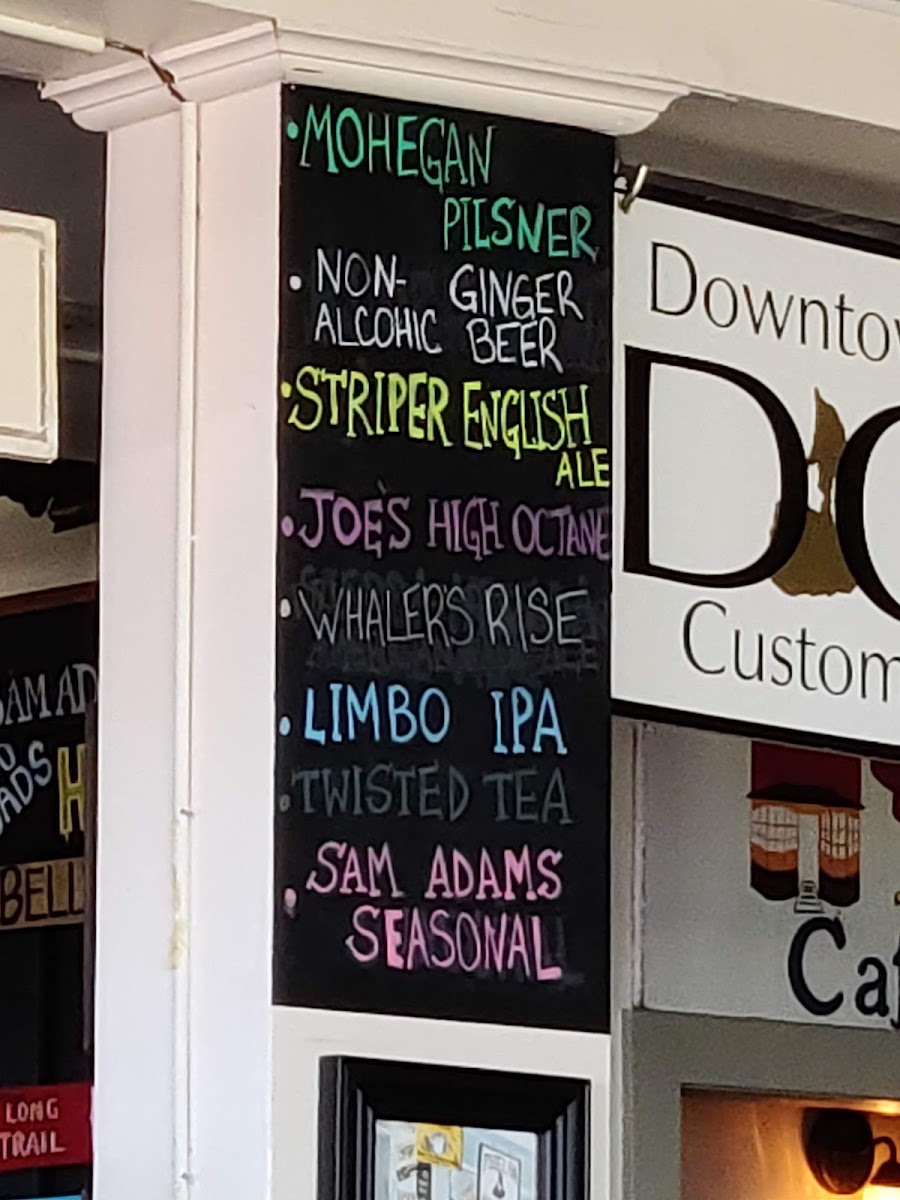 • MOHEGAN
PILSNER
• NON- GINGER
ALCOHIC BEER
• STRIPER ENGLISH
ALE
• JOE'S HIGH OCTANE
• WHALER'S RISE
• LIMBO IPA
• TWISTED TEA
• SAM ADAMS
SEASONAL
Downto
D
Custom
Caf
SAM AD
ADS H
BELL
LONG
TRAIL